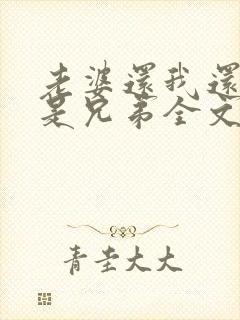 老婆還我還
是兄弟全文
青圭大大